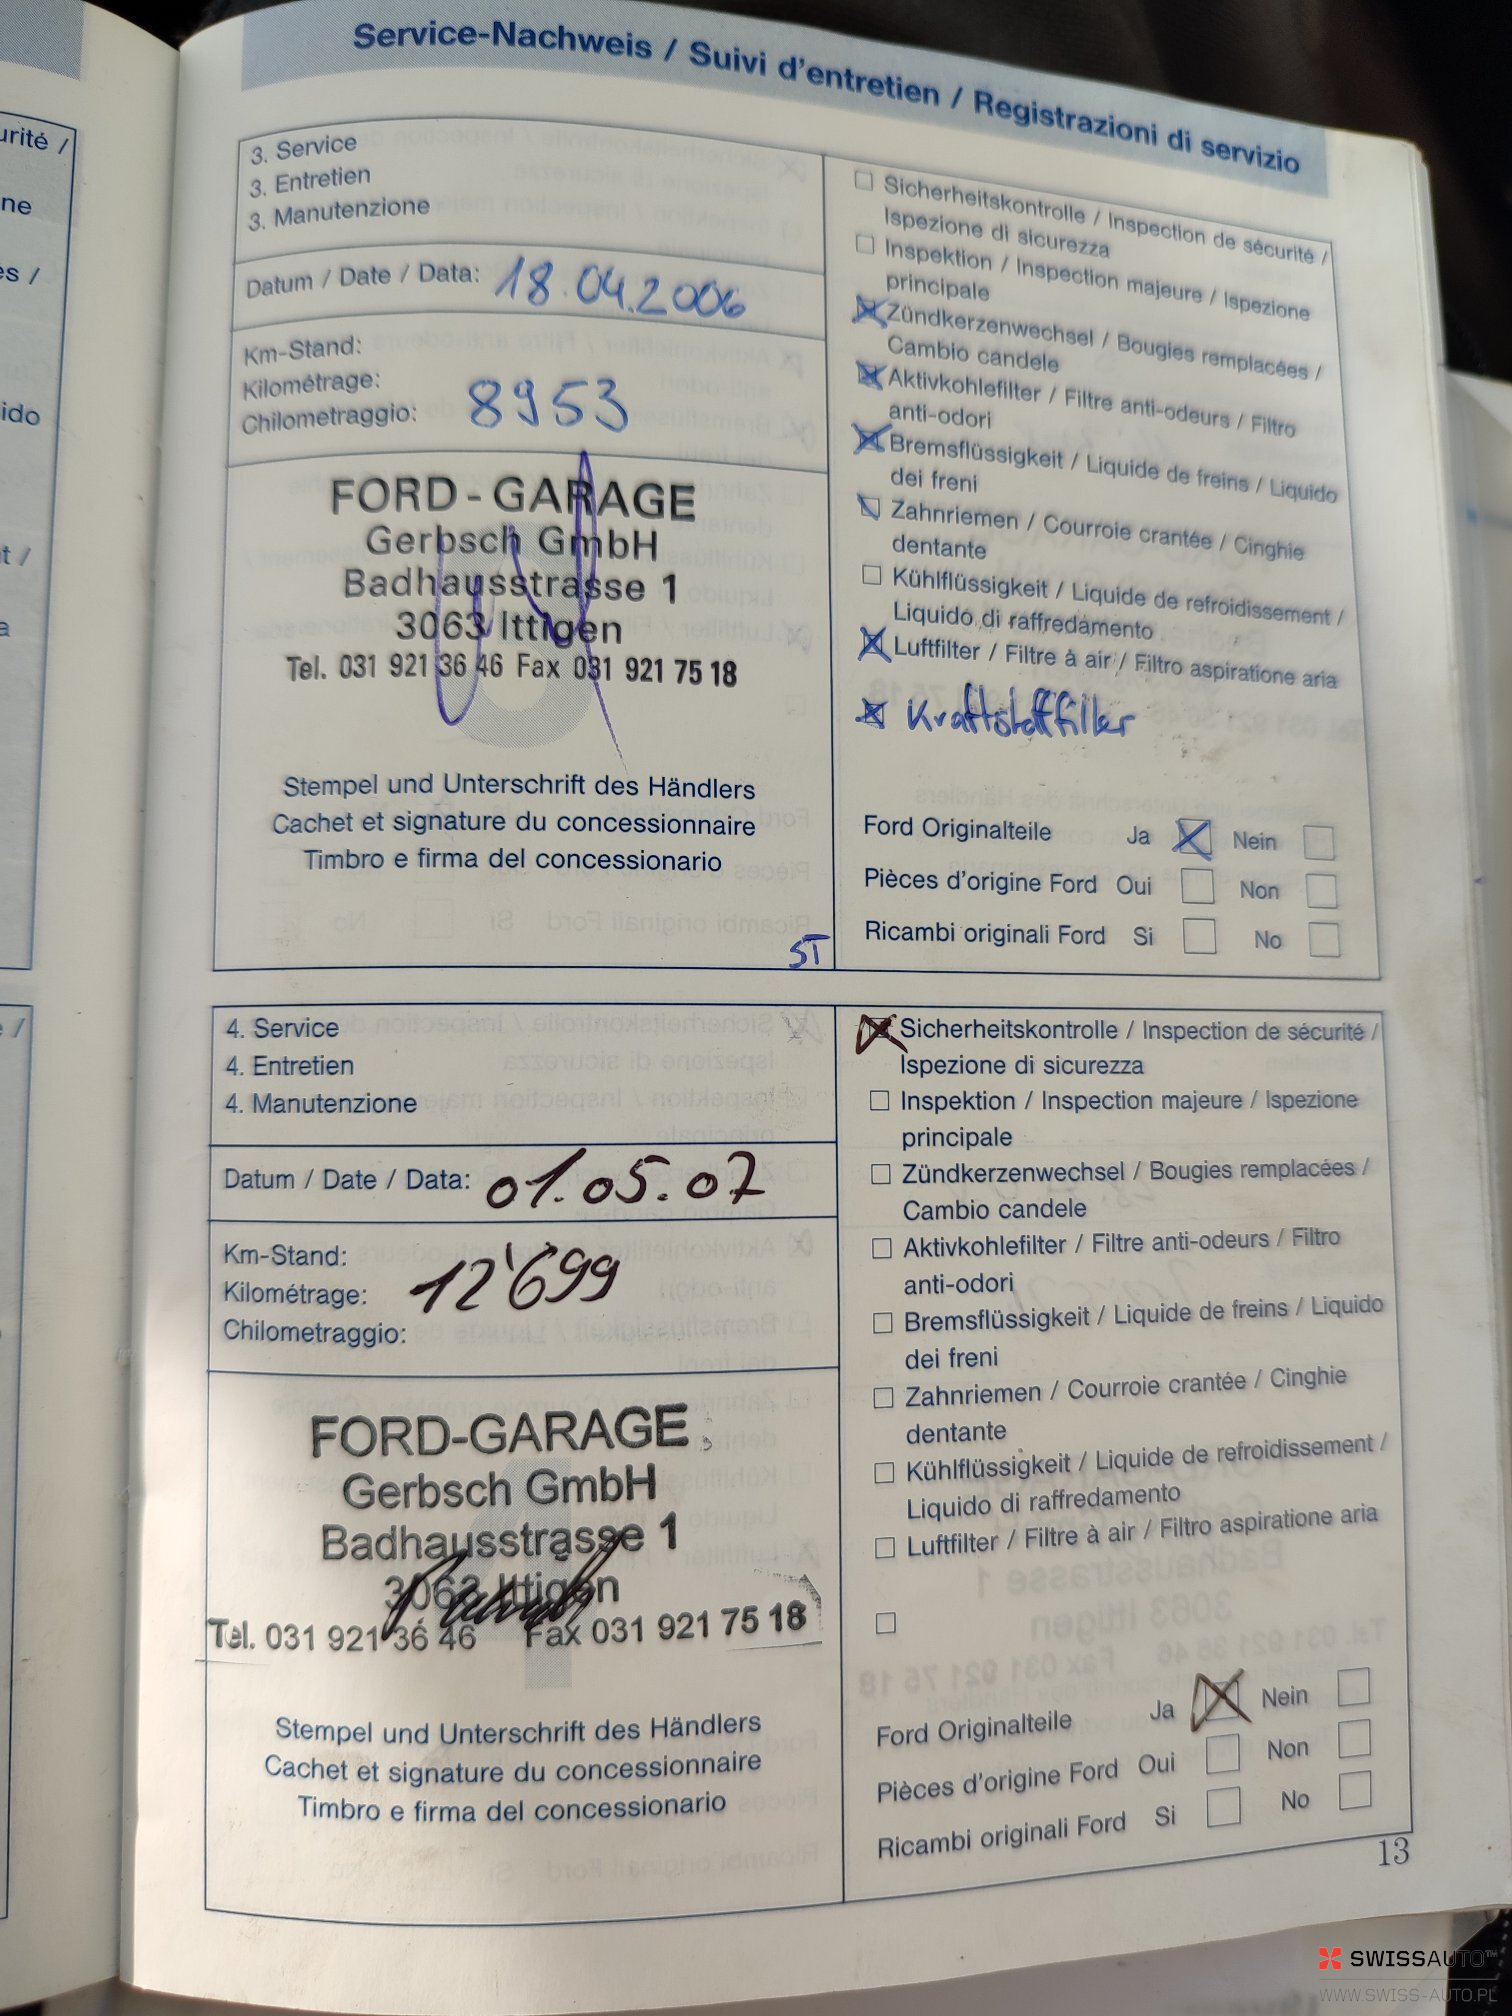 Service-Nachweis / Suivi d'entretien / Registrazioni di servizio
urité /
ne
es /
ido
t /
a
/
3. Service
3. Entretien
3. Manutenzione
Datum / Date / Data: 18.04.2006
Km-Stand:
Kilométrage:
Chilometraggio: 8953
FORD - GARAGE
Gerbsch GmbH
Badhausstrasse 1
3063 Ittigen
Tel. 031 921 36 46 Fax 031 921 75 18
Stempel und Unterschrift des Händlers
Cachet et signature du concessionnaire
Timbro e firma del concessionario
ST
Sicherheitskontrolle / Inspection de sécurité /
Ispezione di sicurezza
Inspektion / Inspection majeure / Ispezione
principale
Zündkerzenwechsel / Bougies remplacées /
Cambio candele
Aktivkohlefilter / Filtre anti-odeurs / Filtro
anti-odori
Bremsflüssigkeit / Liquide de freins / Liquido
dei freni
Zahnriemen / Courroie crantée / Cinghie
dentante
Kühlflüssigkeit / Liquide de refroidissement /
Liquido di raffredamento
Luftfilter / Filtre à air / Filtro aspiratione aria
Kraftstofffilter
Ford Originalteile Ja Nein
Pièces d'origine Ford Oui Non
Ricambi originali Ford Si No
4. Service
4. Entretien
4. Manutenzione
Datum / Date / Data: 01.05.07
Km-Stand:
Kilométrage: 12'699
Chilometraggio:
FORD-GARAGE
Gerbsch GmbH
Badhausstrasse 1
3063 Ittigen
Tel. 031 921 36 46 Fax 031 921 75 18
Stempel und Unterschrift des Händlers
Cachet et signature du concessionnaire
Timbro e firma del concessionario
Sicherheitskontrolle / Inspection de sécurité /
Ispezione di sicurezza
Inspektion / Inspection majeure / Ispezione
principale
Zündkerzenwechsel / Bougies remplacées /
Cambio candele
Aktivkohlefilter / Filtre anti-odeurs / Filtro
anti-odori
Bremsflüssigkeit / Liquide de freins / Liquido
dei freni
Zahnriemen / Courroie crantée / Cinghie
dentante
Kühlflüssigkeit / Liquide de refroidissement /
Liquido di raffredamento
Luftfilter / Filtre à air / Filtro aspiratione aria
Ford Originalteile Ja Nein
Pièces d'origine Ford Oui Non
Ricambi originali Ford Si No
13
SWISSAUTO™
WWW.SWISS-AUTO.PL